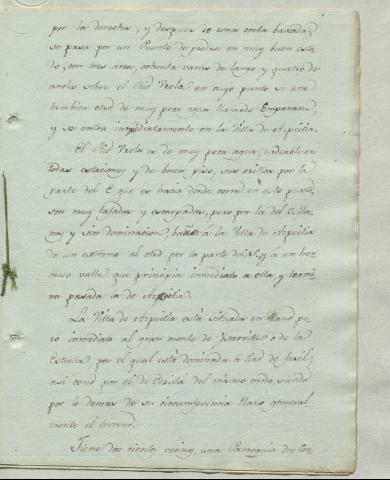 por la derecha; y despues de una corta baxada,
se pasa por un Puente de piedra en muy buen esta
do, con tres arcos, ochenta varas de largo y quatro de
ancho sobre el Rio Vrola en cuyo punto se une
tambien otro de muy poca agua llamado
y se entra inmediatamente en la Villa de Azpeitia.
El Rio Vrola es de muy poca agua, vadeable en
todas estaciones y de buen piso, sus orillas por la
parte del E que es hacia donde corre en este punto,
son muy tajadas y escarpadas, pero por la del O. lla
nas y sin dominacion, baña á la Villa de Azpeitia
de un extremo al otro por la parte del y á un her
moso valle que principia inmediato á ella y termi
na pasada la de
La Villa de Azpeitia está situada en llano pe
ro inmediata al gran monte de ó de la
por el qual está dominada á tiro de fusil,
asi como por el de del mismo modo siendo
por lo demas de su circunferencia llano general
mente el terreno.
Tiene dos cientos vecinos, una Parroquia dos Con